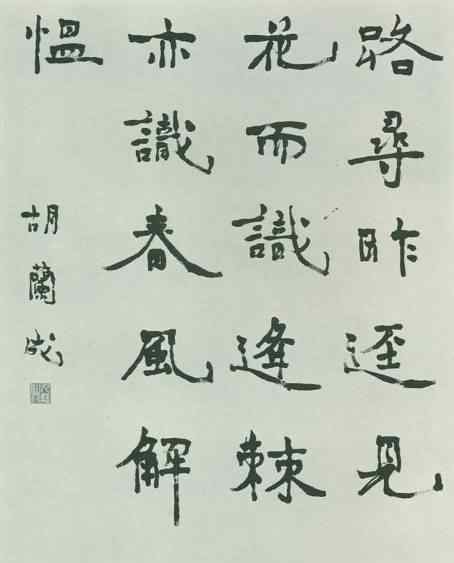 路尋昨逕見
花而識逢棘
亦識春風解
慍
胡蘭成